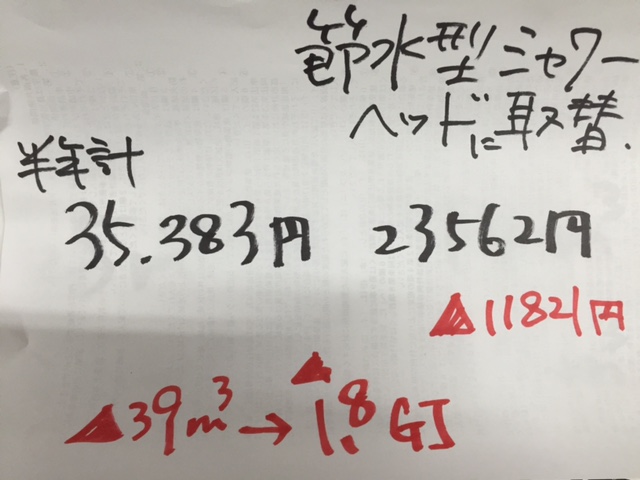 節水型シャワー
ヘッドに取替.
半年計
35.383円 23562円
▲11821円
▲39m³→▲1.8GJ